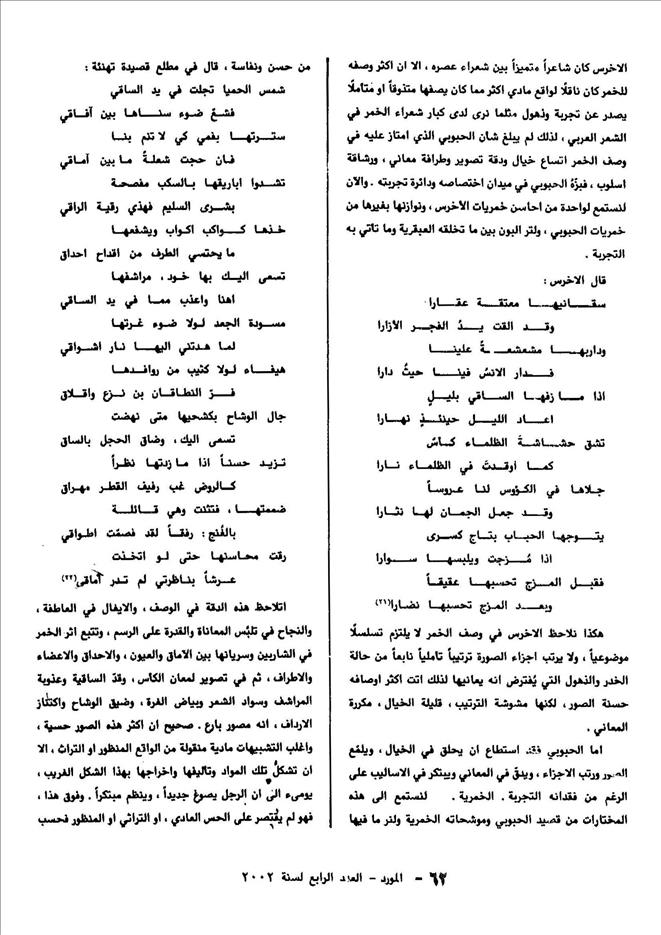 الاخرس كان شاعراً متميزاً بين شعراء عصره ، الا ان اكثر وصفه
للخمر كان ناقلًا لواقع مادي اكثر مما كان يصفها متذوقاً او متأملًا
يصدر عن تجربة وذهول مثلما نرى لدى كبار شعراء الخمر في
الشعر العربي ، لذلك لم يبلغ شان الحبوبي الذي امتاز عليه في
وصف الخمر اتساع خيال ودقة تصوير وطرافة معاني ، ورشاقة
اسلوب ، فبزّه الحبوبي في ميدان اختصاصه ودائرة تجربته . والآن
لنستمع لواحدة من احاسن خمريات الأخرس ، ونوازنها بغيرها من
خمريات الحبوبي ، ولتر البون بين ما تخلقه العبقرية وما تأتي به
التجربة .
قال الاخرس :
سقانيهـا معتقـة عقـارا
وقـد القت يـدُ الفجـر الأزارا
وداربهـا مشعشعـةً علينـا
فـدار الانسُ فينـا حيثُ دارا
اذا مـا زفهـا السـاقي بليـلٍ
اعـاد الليـل حينئـذٍ نهـارا
تشق حشـاشةَ الظلمـاء كـأسٌ
كمـا أوقدتَ في الظلمـاء نـارا
جـلاها في الكؤوس لنـا عـروساً
وقـد جعل الجمـان لهـا نثـارا
يتـوجهـا الحبـاب بتـاج كسـرى
اذا مُـزجت ويلبسهـا سـوارا
فقبـل المـزج تحسبهـا عقيقـاً
وبعـد المزج تحسبهـا نضارا(٢١)
هكذا نلاحظ الاخرس في وصف الخمر لا يلتزم تسلسلًا
موضوعياً ، ولا يرتب اجزاء الصورة ترتيباً تأملياً نابعاً من حالة
الخدر والذهول التي يُفترض انه يعانيها لذلك اتت اكثر اوصافه
حسنة الصور ، لكنها مشوشة الترتيب ، قليلة الخيال ، مكررة
المعاني .
اما الحبوبي فقد استطاع ان يحلق في الخيال ، ويلمّع
الصور ورتب الاجزاء ، ويدقّ في المعاني ويبتكر في الاساليب على
الرغم من فقدانه التجربة . الخمرية . لنستمع الى هذه
المختارات من قصيد الحبوبي وموشحاته الخمرية ولنر ما فيها
من حسن ونفاسة ، قال في مطلع قصيدة تهنئة :
شمس الحميا تجلت في يد الساقي
فشعّ ضوء سنـاها بين آفـاقي
ستـرتهـا بفمي كي لا تنم بنـا
فـان حجت شعلةً مابين آماقي
تشدوا اباريقهـا بالسكب مفصحة
بشـرى السليم فهذي رقية الراقي
خذهـا كـواكب اكواب ويشفعهـا
ما يحتسي الطرف من اقداح احداق
تسعى اليـك بها خود ، مراشفها
اهنا واعذب ممـا في يد الساقي
مسـودة الجعد لـولا ضوء غرتهـا
لمـا هـدتني اليهـا نار اشـواقي
هيفـاء لـولا كثيب من روادفـها
فـرّ النطاقـان بن نـزع واقلاق
جال الوشاح بكشحيها متى نهضت
تسعى اليك ، وضاق الحجل بالساق
تـزيد حسنـاً اذا مازدتها نظـراً
كـالروض غب رفيف القطـر مهراق
ضممتهـا ، فتثنت وهي قائـلة
بالغُنج : رفقـاً لقد فصمّت اطواقي
رقت محاسنهـا حتى لـو اتخذت
عـرشاً بناظرتي لم تـدر آماقي(٢٢)
اتلاحظ هذه الدقة في الوصف ، والايغال في العاطفة ،
والنجاح في تلبّس المعاناة والقدرة على الرسم ، وتتبع اثر الخمر
في الشاربين وسريانها بين الاماق والعيون ، والاحداق والاعضاء
والاطراف ، ثم في تصوير لمعان الكأس ، وقدّ الساقية وعذوبة
المراشف وسواد الشعر وبياض الغرة ، وضيق الوشاح واكتناز
الارداف ، انه مصور بارع . صحيح ان اكثر هذه الصور حسية ،
واغلب التشبيهات مادية منقولة من الواقع المنظور او التراث ، الا
ان تشكل تلك المواد وتاليفها واخراجها بهذا الشكل الغريب ،
يومىء الى ان الرجل يصوغ جديداً ، وينظم مبتكراً . وفوق هذا ،
فهو لم يقتصر على الحس العادي ، او التراثي او المنظور فحسب
٦٢ - المورد - العدد الرابع لسنة ٢٠٠٢